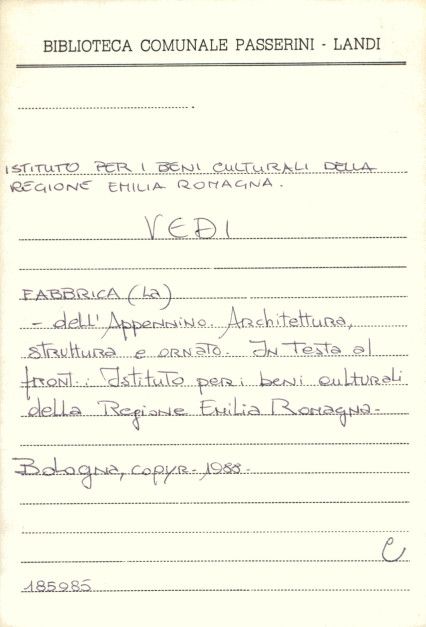 BIBLIOTECA COMUNALE PASSERINI - LANDI
ISTITUTO PER I BENI CULTURALI DELLA
REGIONE EMILIA ROMAGNA.
VEDI
FABBRICA (La)
- dell'Appennino. Architettura,
struttura e ornato. In testa al
front.: Istituto per i beni culturali
della Regione Emilia Romagna.
Bologna, copyr. 1988.
C
185985